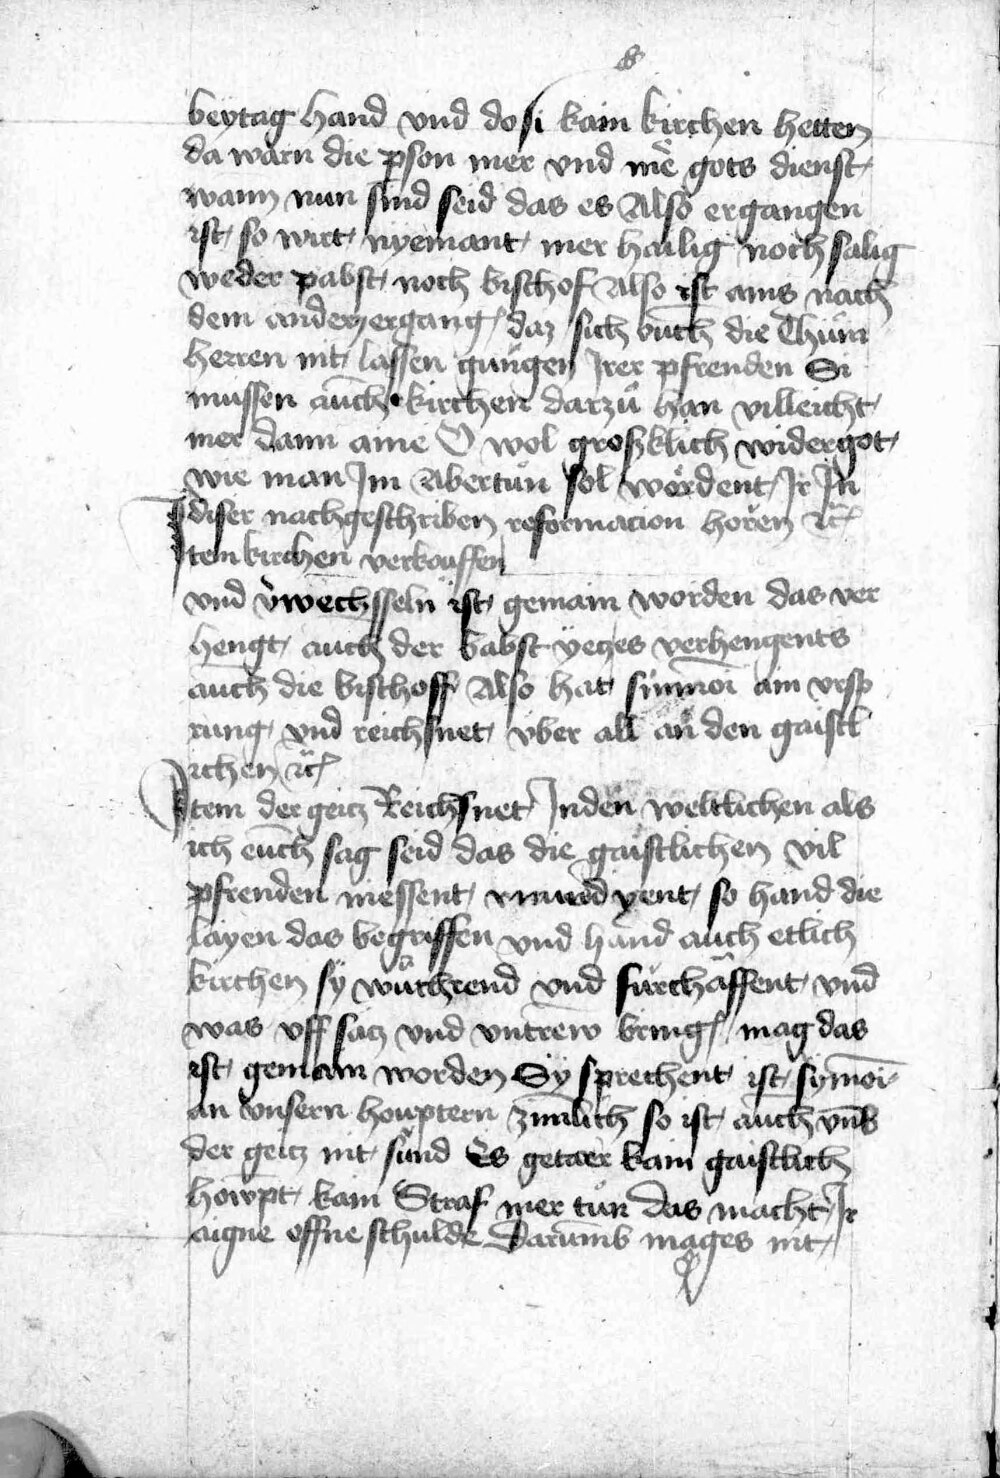 beytag hand vnd do si kain kirchen hetten
da warn die pson mer vnd mē gots dienst
wann nun sind seid das es Also ergangen
ist so wirt nyemant mer hailig noch salig
weder pabst noch bischof Also ist ains nach
dem andern ergang daz sich auch die Thům
herren nit lassen gnůgen Irer pfrenden Si
mussen auch kirchen darzů han villeicht
mer dann aine O wol groszklich wider got
wie man Im Abertůn sol werdent Ir In
diser nachgeschriben reformacion horen ꝛc
Item kirchen verkouffen
vnd v̄wechsseln ist gemain worden das ver
hengt auch der babst yetzes verhengents
auch die bischoff Also hat simoni am vrsp
rung vnd reichsnet vber all an den gaistl
ichen ꝛc
Item der geitz Reichsnet In den weltlichen als
ich euch sag seid das die gaistlichen vil
pfrenden niessent so hand die
layen das begriffen vnd hand auch etlich
kirchen sy wůchrend vnd fůrchaffent vnd
was vff satz vnd vntrew bring mag das
ist gemain worden Sy sprechent ist symoni
an vnsern houptern zimlich so ist auch vns
der geitz nit sůnd Es getaer kain gaistlich
howpt kain Straf mer tůn das macht Ir
aigne offne schulde Darumb mag es nit